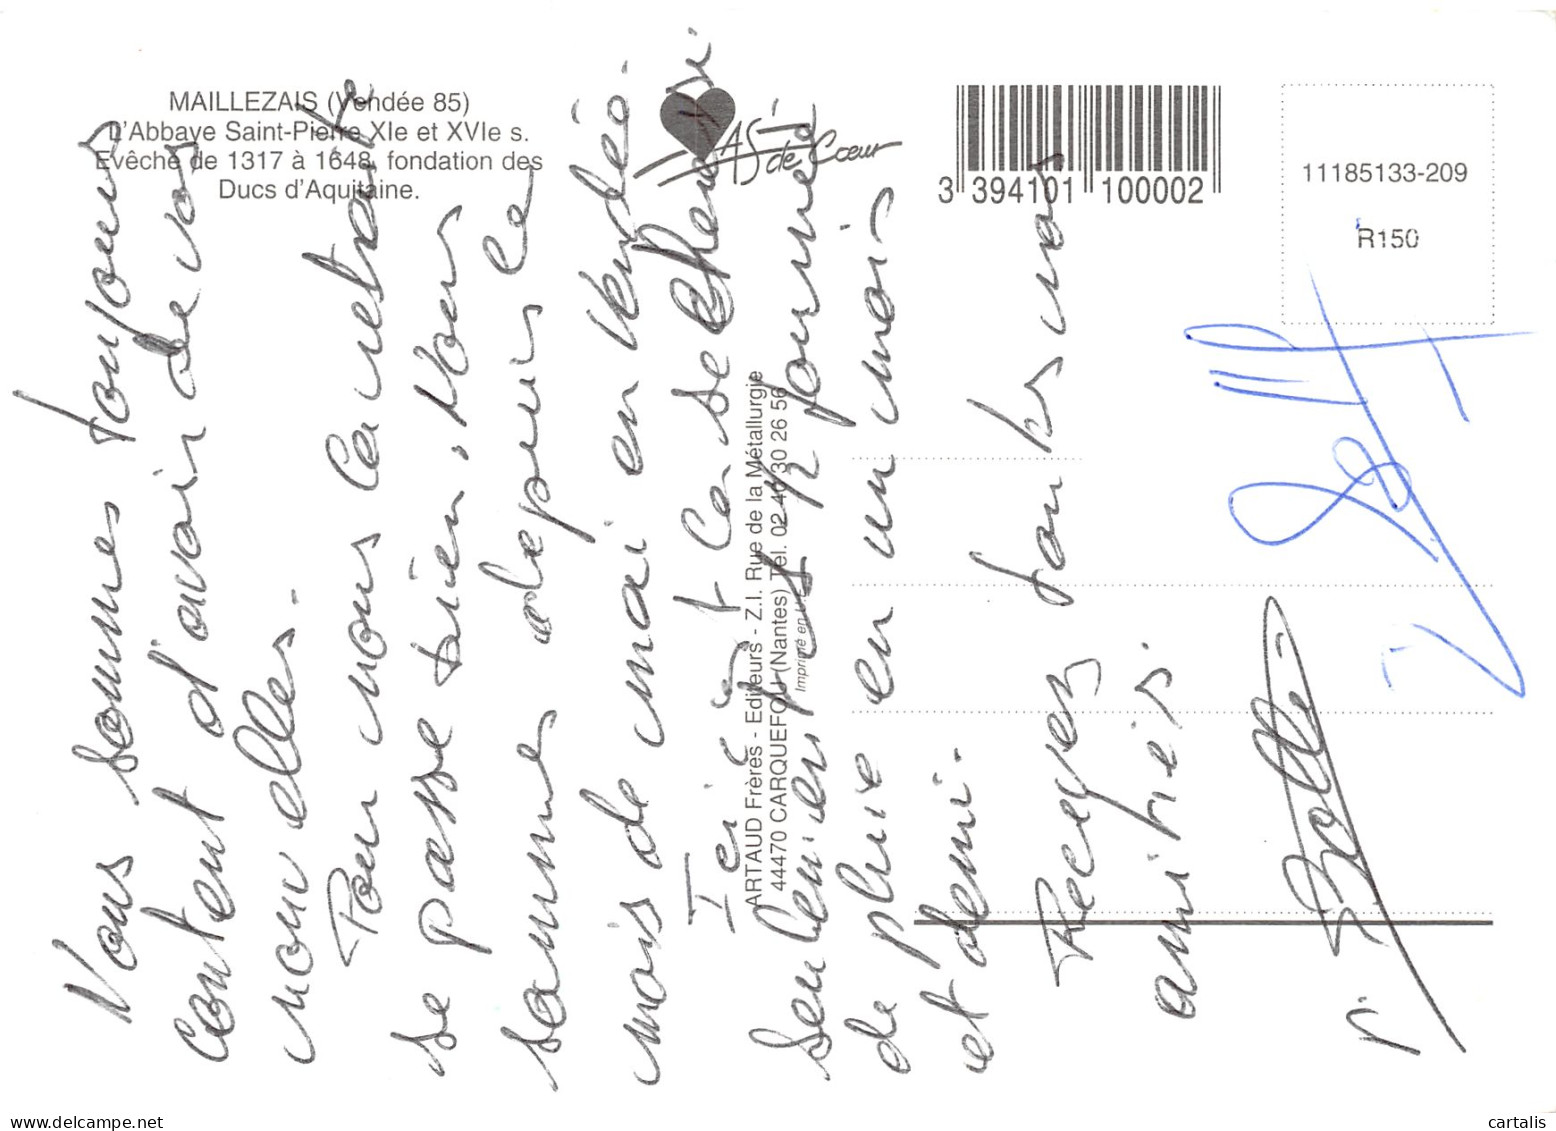 MAILLEZAIS (Vendée 85)
L'Abbaye Saint-Pierre XIe et XVIe s.
Evêché de 1317 à 1648, fondation des
Ducs d'Aquitaine.
AS de Cœur
3 394101 100002
11185133-209
R150
ARTAUD Frères - Editeurs - Z.I. Rue de la Métallurgie
44470 CARQUEFOU (Nantes) Tél. 02 40 30 26 56
Imprimé en
Vous sommes toujours
content d'avoir de vos
nouvelles.
Pour nous la retraite
se passe bien. Nous
sommes depuis le
mois de mai en Vendée.
Ici c'est la sécheresse
seulement 2 1/2 journée
de pluie en un mois
et demi.
Recevez tous les nos
amitiés.
delcampe.net
cartalis